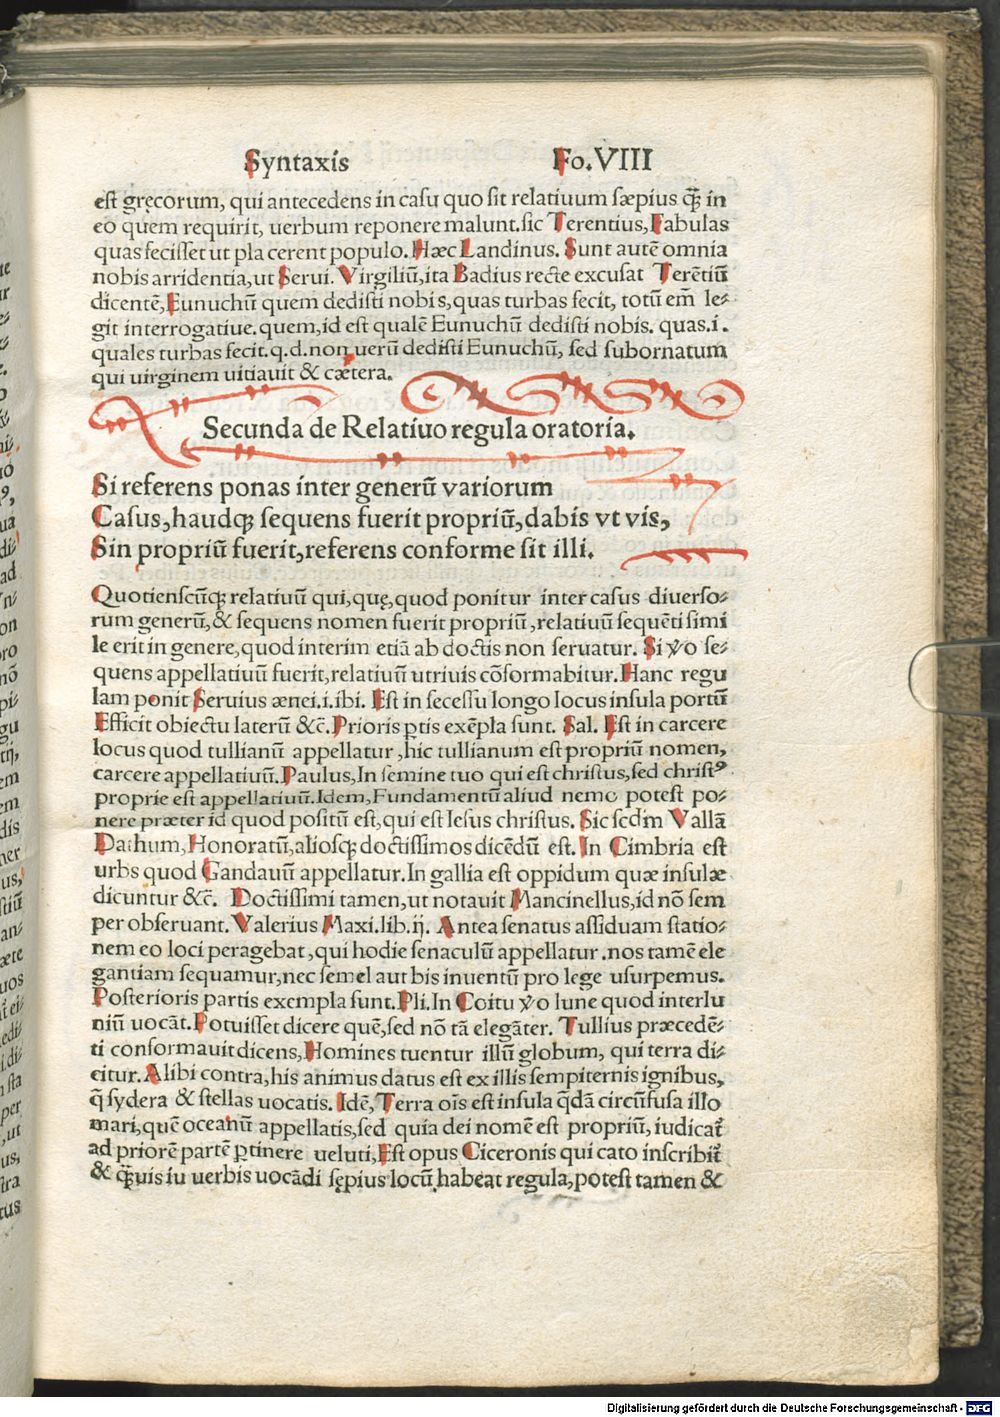 Syntaxis Fo.VIII
est gręcorum, qui antecedens in casu quo sit relatiuum sæpius q̃ in
eo quem requirit, uerbum reponere malunt.sic Terentius, Fabulas
quas fecisset ut placerent populo. Hæc Landinus. Sunt autē omnia
nobis arridentia,ut Serui. Virgiliū,ita Badius recte excusat Terētiū
dicentē,Eunuchū quem dedisti nobis,quas turbas fecit, totū em̄ le⸗
git interrogatiue.quem,id est qualē Eunuchū dedisti nobis. quas.i.
quales turbas fecit.q.d.non uerū dedisti Eunuchū, sed subornatum
qui uirginem uitiauit & cætera.
Secunda de Relatiuo regula oratoria.
Si referens ponas inter generū variorum
Casus,haudqꝫ sequens fuerit propriū,dabis vt vis,
Sin propriū fuerit,referens conforme sit illi.
Quotienscūqꝫ relatiuū qui,quę,quod ponitur inter casus diuerso⸗
rum generū,& sequens nomen fuerit propriū,relatiuū sequēti simi
le erit in genere,quod interim etiā ab doctis non seruatur. Si ꝟo se⸗
quens appellatiuū fuerit,relatiuū utriuis cōformabitur.Hanc regu
lam ponit Seruius ænei.i.ibi. Est in secessu longo locus insula portū
Efficit obiectu laterū &c̄.Prioris ꝑtis exēpla sunt. Sal. Est in carcere
locus quod tullianū appellatur,hic tullianum est propriū nomen,
carcere appellatiuū.Paulus,In semine tuo qui est christus,sed christꝰ
proprie est appellatiuū.Idem,Fundamentū aliud nemo potest po⸗
nere præter id quod positū est,qui est Iesus christus. Sic scdm̄ Vallā
Dathum,Honoratū,aliosqꝫ doctissimos dicēdū est. In Cimbria est
urbs quod Gandauū appellatur.In gallia est oppidum quæ insulæ
dicuntur &c̄. Doctissimi tamen,ut notauit Mancinellus,id nō sem
per obseruant. Valerius Maxi.lib.ij. Antea senatus assiduam statio⸗
nem eo loci peragebat,qui hodie senaculū appellatur.nos tamē ele
gantiam sequamur,nec semel aut bis inuentū pro lege usurpemus.
Posterioris partis exempla sunt.Pli.In Coitu ꝟo lune quod interlu
niū uocāt.Potuisset dicere quē,sed nō tā elegāter. Tullius præcedē⸗
ti conformauit dicens,Homines tuentur illū globum, qui terra di⸗
citur.Alibi contra,his animus datus est ex illis sempiternis ignibus,
q̄ sydera & stellas uocatis. Idē,Terra oīs est insula q̄dā circūfusa illo
mari,quē oceanū appellatis,sed quia dei nomē est propriū,iudicat̄
ad priorē partē ꝑtinere ueluti,Est opus Ciceronis qui cato inscribit̄
& q̄uis in uerbis uocādi sępius locū habeat regula,potest tamen &
Digitalisierung gefördert durch die Deutsche Forschungsgemeinschaft - DFG